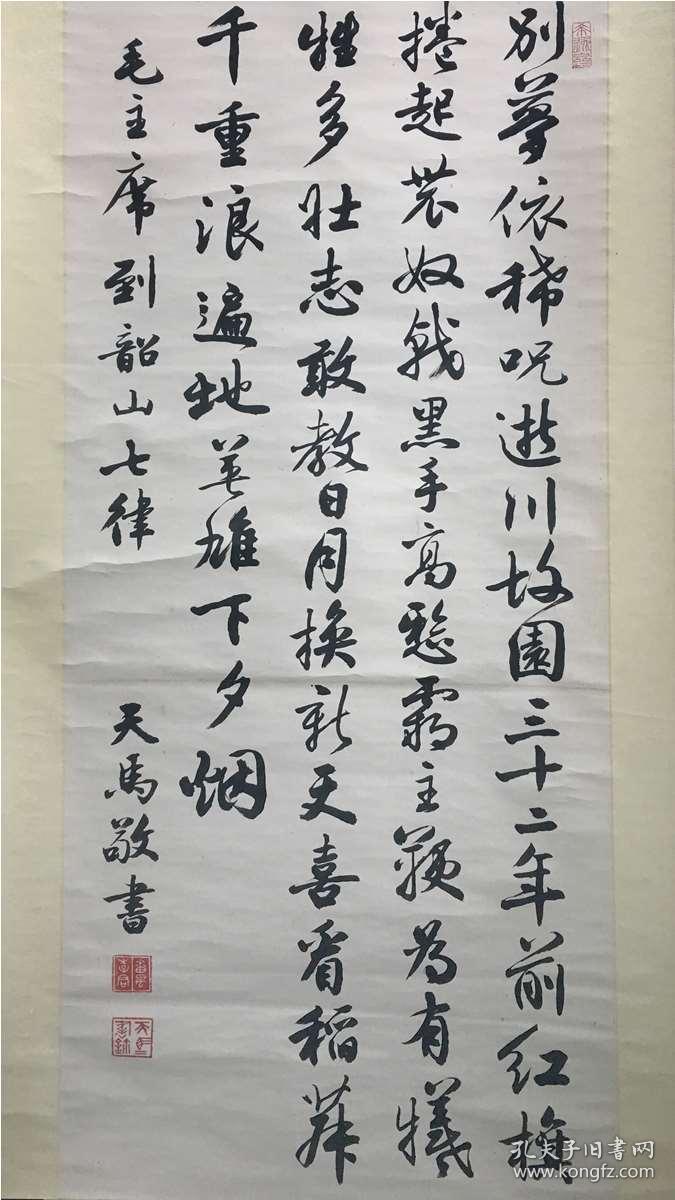 別夢依稀呪逝川故園三十二年前紅旗
捲起農奴戟黑手高懸霸主鞭為有犧
牲多壯志敢教日月換新天喜看稻菽
千重浪遍地英雄下夕烟
毛主席到韶山七律
天馬敬書
孔夫子旧書网
www.kongfz.com